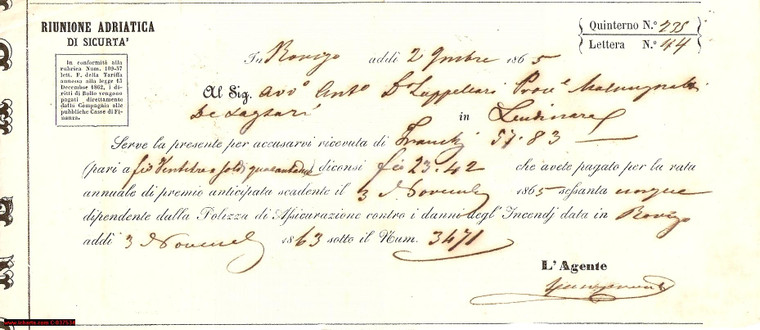 RIUNIONE ADRIATICA
DI SICURTA'
In conformità alla
rubrica Num. 109-57
lett. F. della Tariffa
annessa alla legge 13
Decembre 1862, i di-
ritti di Bollo vengono
pagati direttamente
dalla Compagnia alle
pubbliche Casse di Fi-
nanza.
Quinterno N.° 235
Lettera N.° 44
In Rovigo addì 2 9mbre 1865
Al Sig. Avv° Ant° Dr
in Lendinara
Serve la presente per accusarvi ricevuta di Franchi 57.83
(pari a fni Ventitre soldi quarantadue diconsi fni 23.42 che avete pagato per la rata
annuale di premio anticipata scadente il 3 Novembre 1865
dipendente dalla Polizza di Assicurazione contro i danni degl' Incendj data in Rovigo
addì 3 Novembre 1863 sotto il Num. 3471
L'Agente